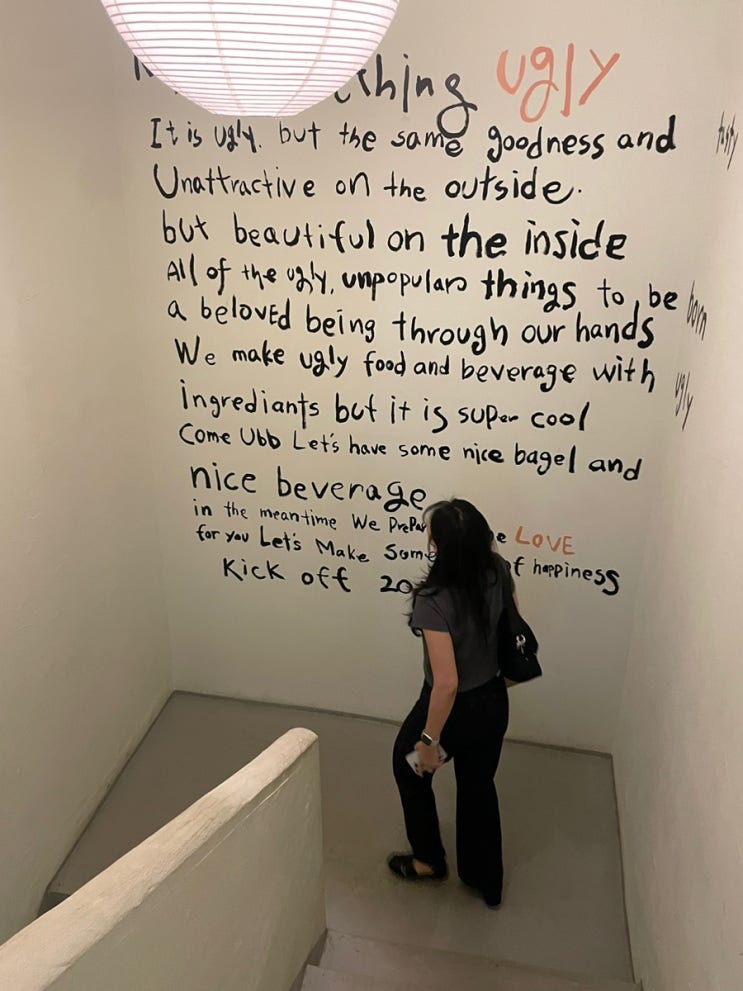 ugly
It is ugly. but the same goodness and
Unattractive on the outside.
but beautiful on the inside
All of the ugly, unpopular things to be
a beloved being through our hands
We make ugly food and beverage with
ingrediants but it is super cool
Come Ubb Let's have some nice bagel and
nice beverage
in the meantime We LOVE
for you Let's Make happiness
Kick off
tasty
born
ugly